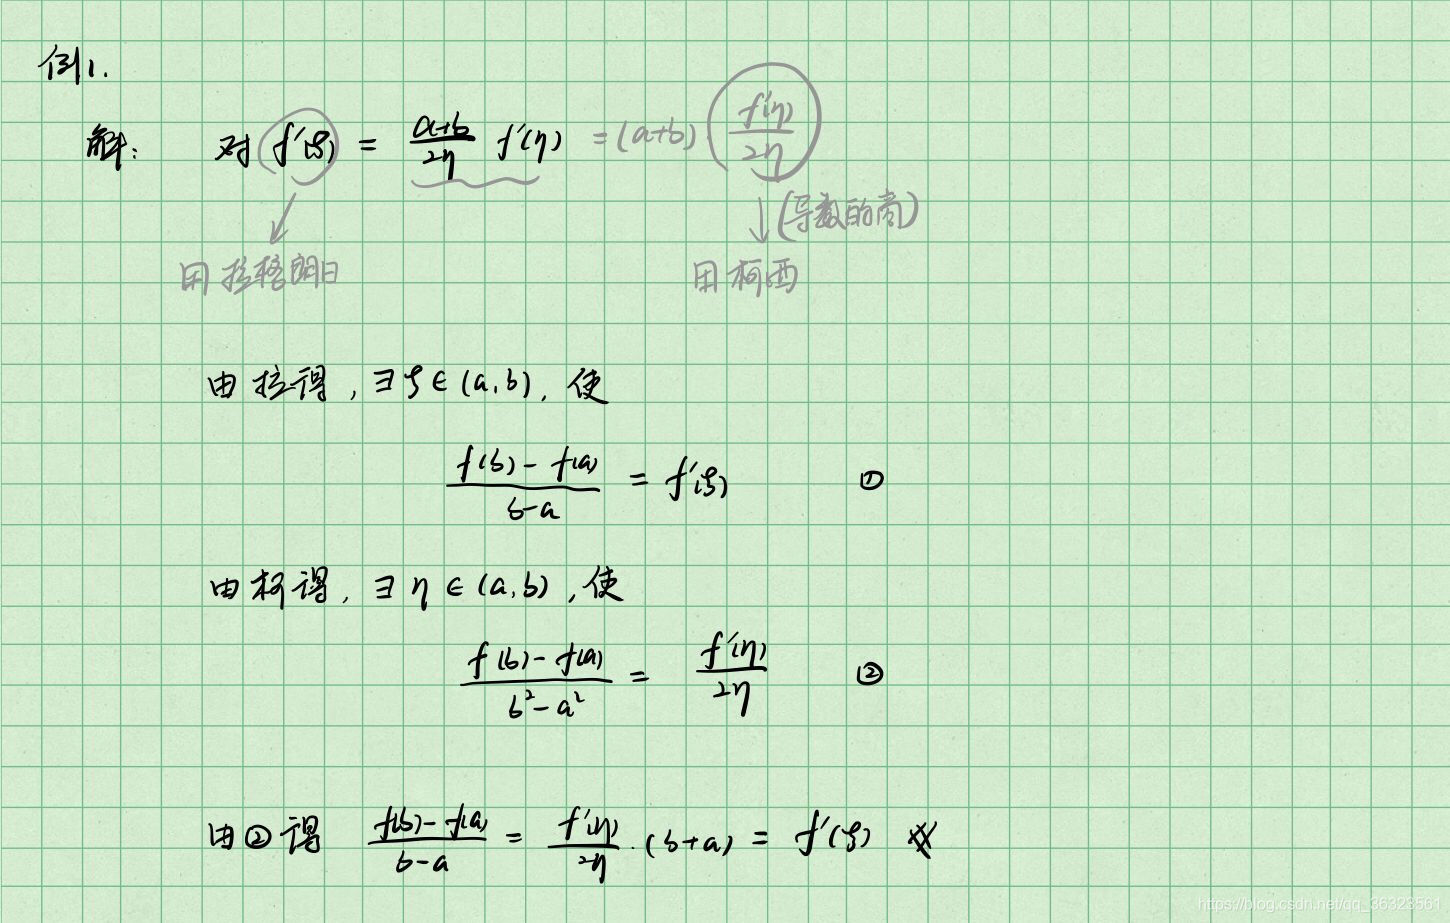 例1.
解: 对 f'(ξ) = \frac{a+b}{2η} f'(η) = (a+b) \frac{f'(η)}{2η}
(导数的商)
用拉格朗日 用柯西
由拉得, ∃ξ∈(a,b), 使
\frac{f(b)-f(a)}{b-a} = f'(ξ) ①
由柯得, ∃η∈(a,b), 使
\frac{f(b)-f(a)}{b²-a²} = \frac{f'(η)}{2η} ②
由②得 \frac{f(b)-f(a)}{b-a} = \frac{f'(η)}{2η}·(b+a) = f'(ξ)
https://blog.csdn.net/qq_36323561